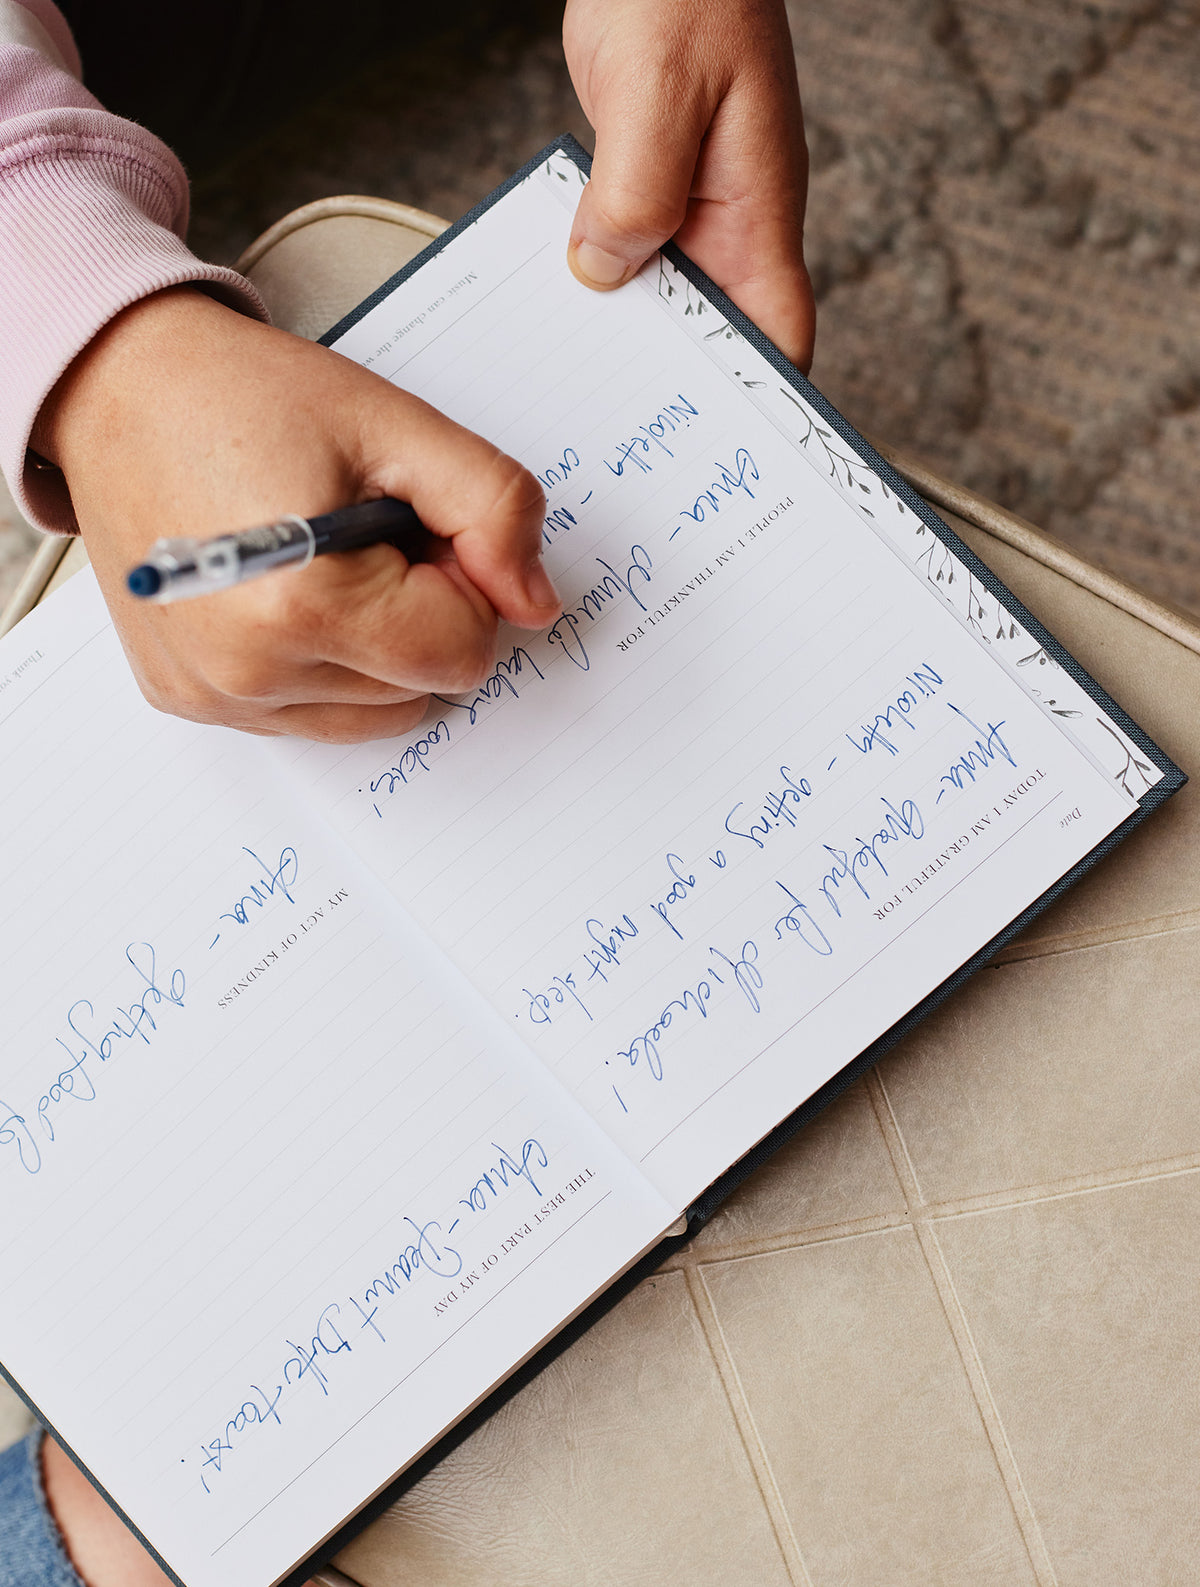 Date
TODAY I AM GRATEFUL FOR
Anna - grateful for Michaela!
Nicoletta - getting a good night sleep.
PEOPLE I AM THANKFUL FOR
Anna -
baking cookies!
Nicoletta -
Music can change the
THE BEST PART OF MY DAY
Anna - Peanut Butter toast!
MY ACT OF KINDNESS
Anna - getting food
Thank